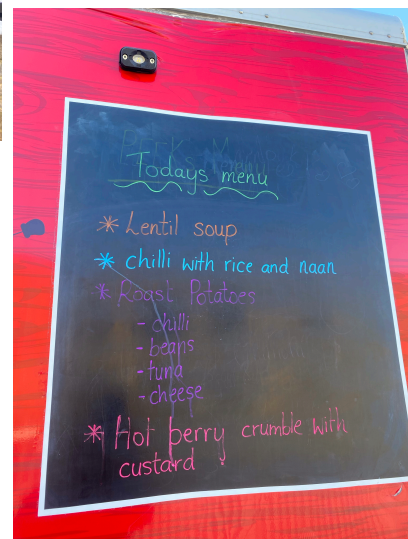 Todays menu
* Lentil soup
* chilli with rice and naan
* Roast Potatoes
- chilli
- beans
- tuna
- cheese
* Hot berry crumble with
custard